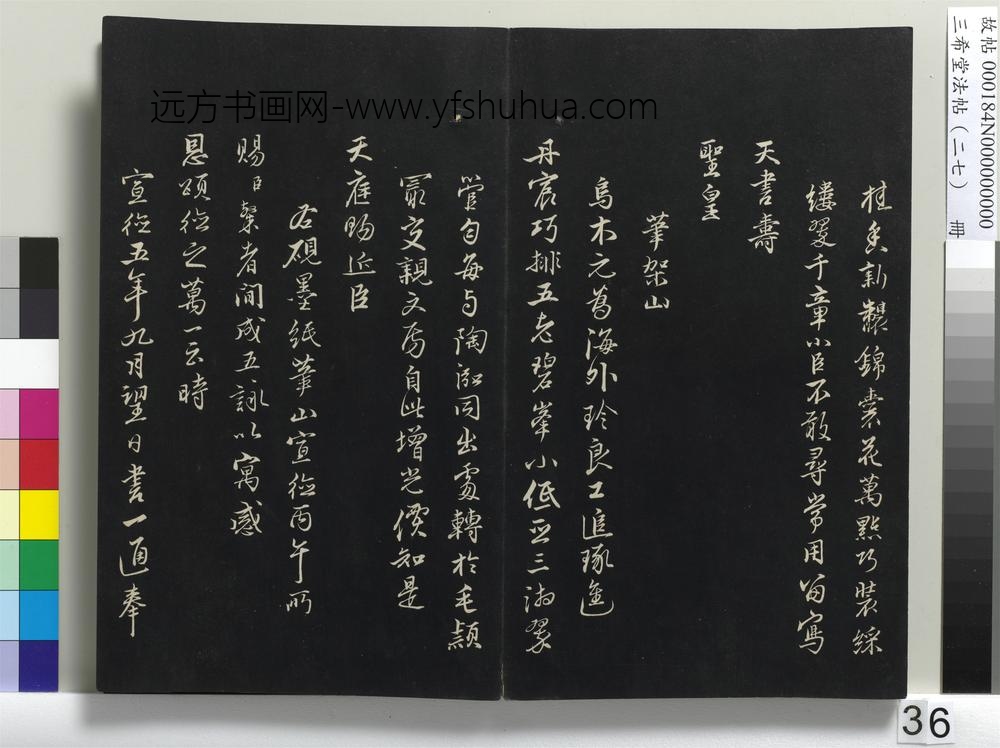 故帖 000184N000000000
三希堂法帖(二七) 冊
远方书画网-www.yfshuhua.com
桂香新糵錦囊花萬點巧裝綵
縷翠千章小臣不敢尋常用留寫
天書壽
聖皇
筆架山
烏木元爲海外珍良工追琢進
丹宸巧排五老碧峯小低亞三湘翠
管勻每與陶泓同出處轉於毛穎
最交親文房自此增光價知是
天庭賜近臣
右硯墨紙筆山宣德丙午所
賜臣榮者間成五詠以寓感
恩頌德之萬一云時
宣德五年九月望日書一通奉
36